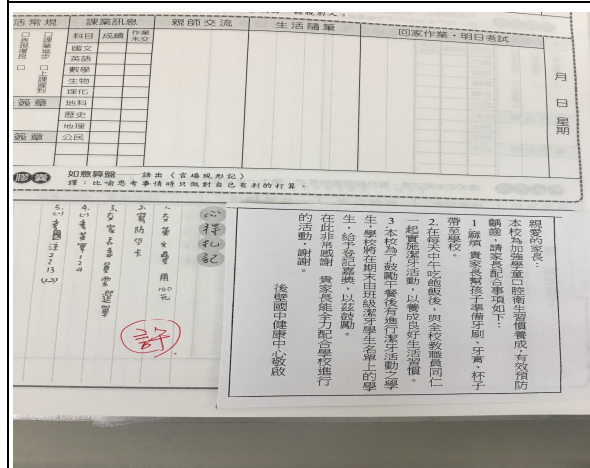 活常規
課業訊息
親師交流
生活隨筆
回家作業・明日考試
月 日 星期
科目 成績 作業未交
國文
英語
數學
生物
理化
地科
歷史
地理
公民
□課業進步
□上課遲到
□表現優良
□
簽章
簽章
膠囊
如意算盤 語出〈官場現形記〉
謹:比喻思考事情時只做對自己有利的打算。
心得札記
1. 交英文費用100元
2. 寫防勞卡
許
親愛的家長:
本校為加強學童口腔衛生習慣養成、有效預防
齲齒,請家長配合事項如下:
1 麻煩 貴家長幫孩子準備牙刷、牙膏、杯子
帶至學校。
2.在每天中午吃飽飯後,與全校教職員同仁
一起實施潔牙活動,以養成良好生活習慣。
3 本校為了鼓勵午餐後有進行潔牙活動之學
生,學校將在期末由班級潔牙學生名單上的學
生,給予登記嘉獎,以茲鼓勵。
在此非常感謝 貴家長能全力配合學校進行
的活動,謝謝。
後壁國中健康中心敬啟